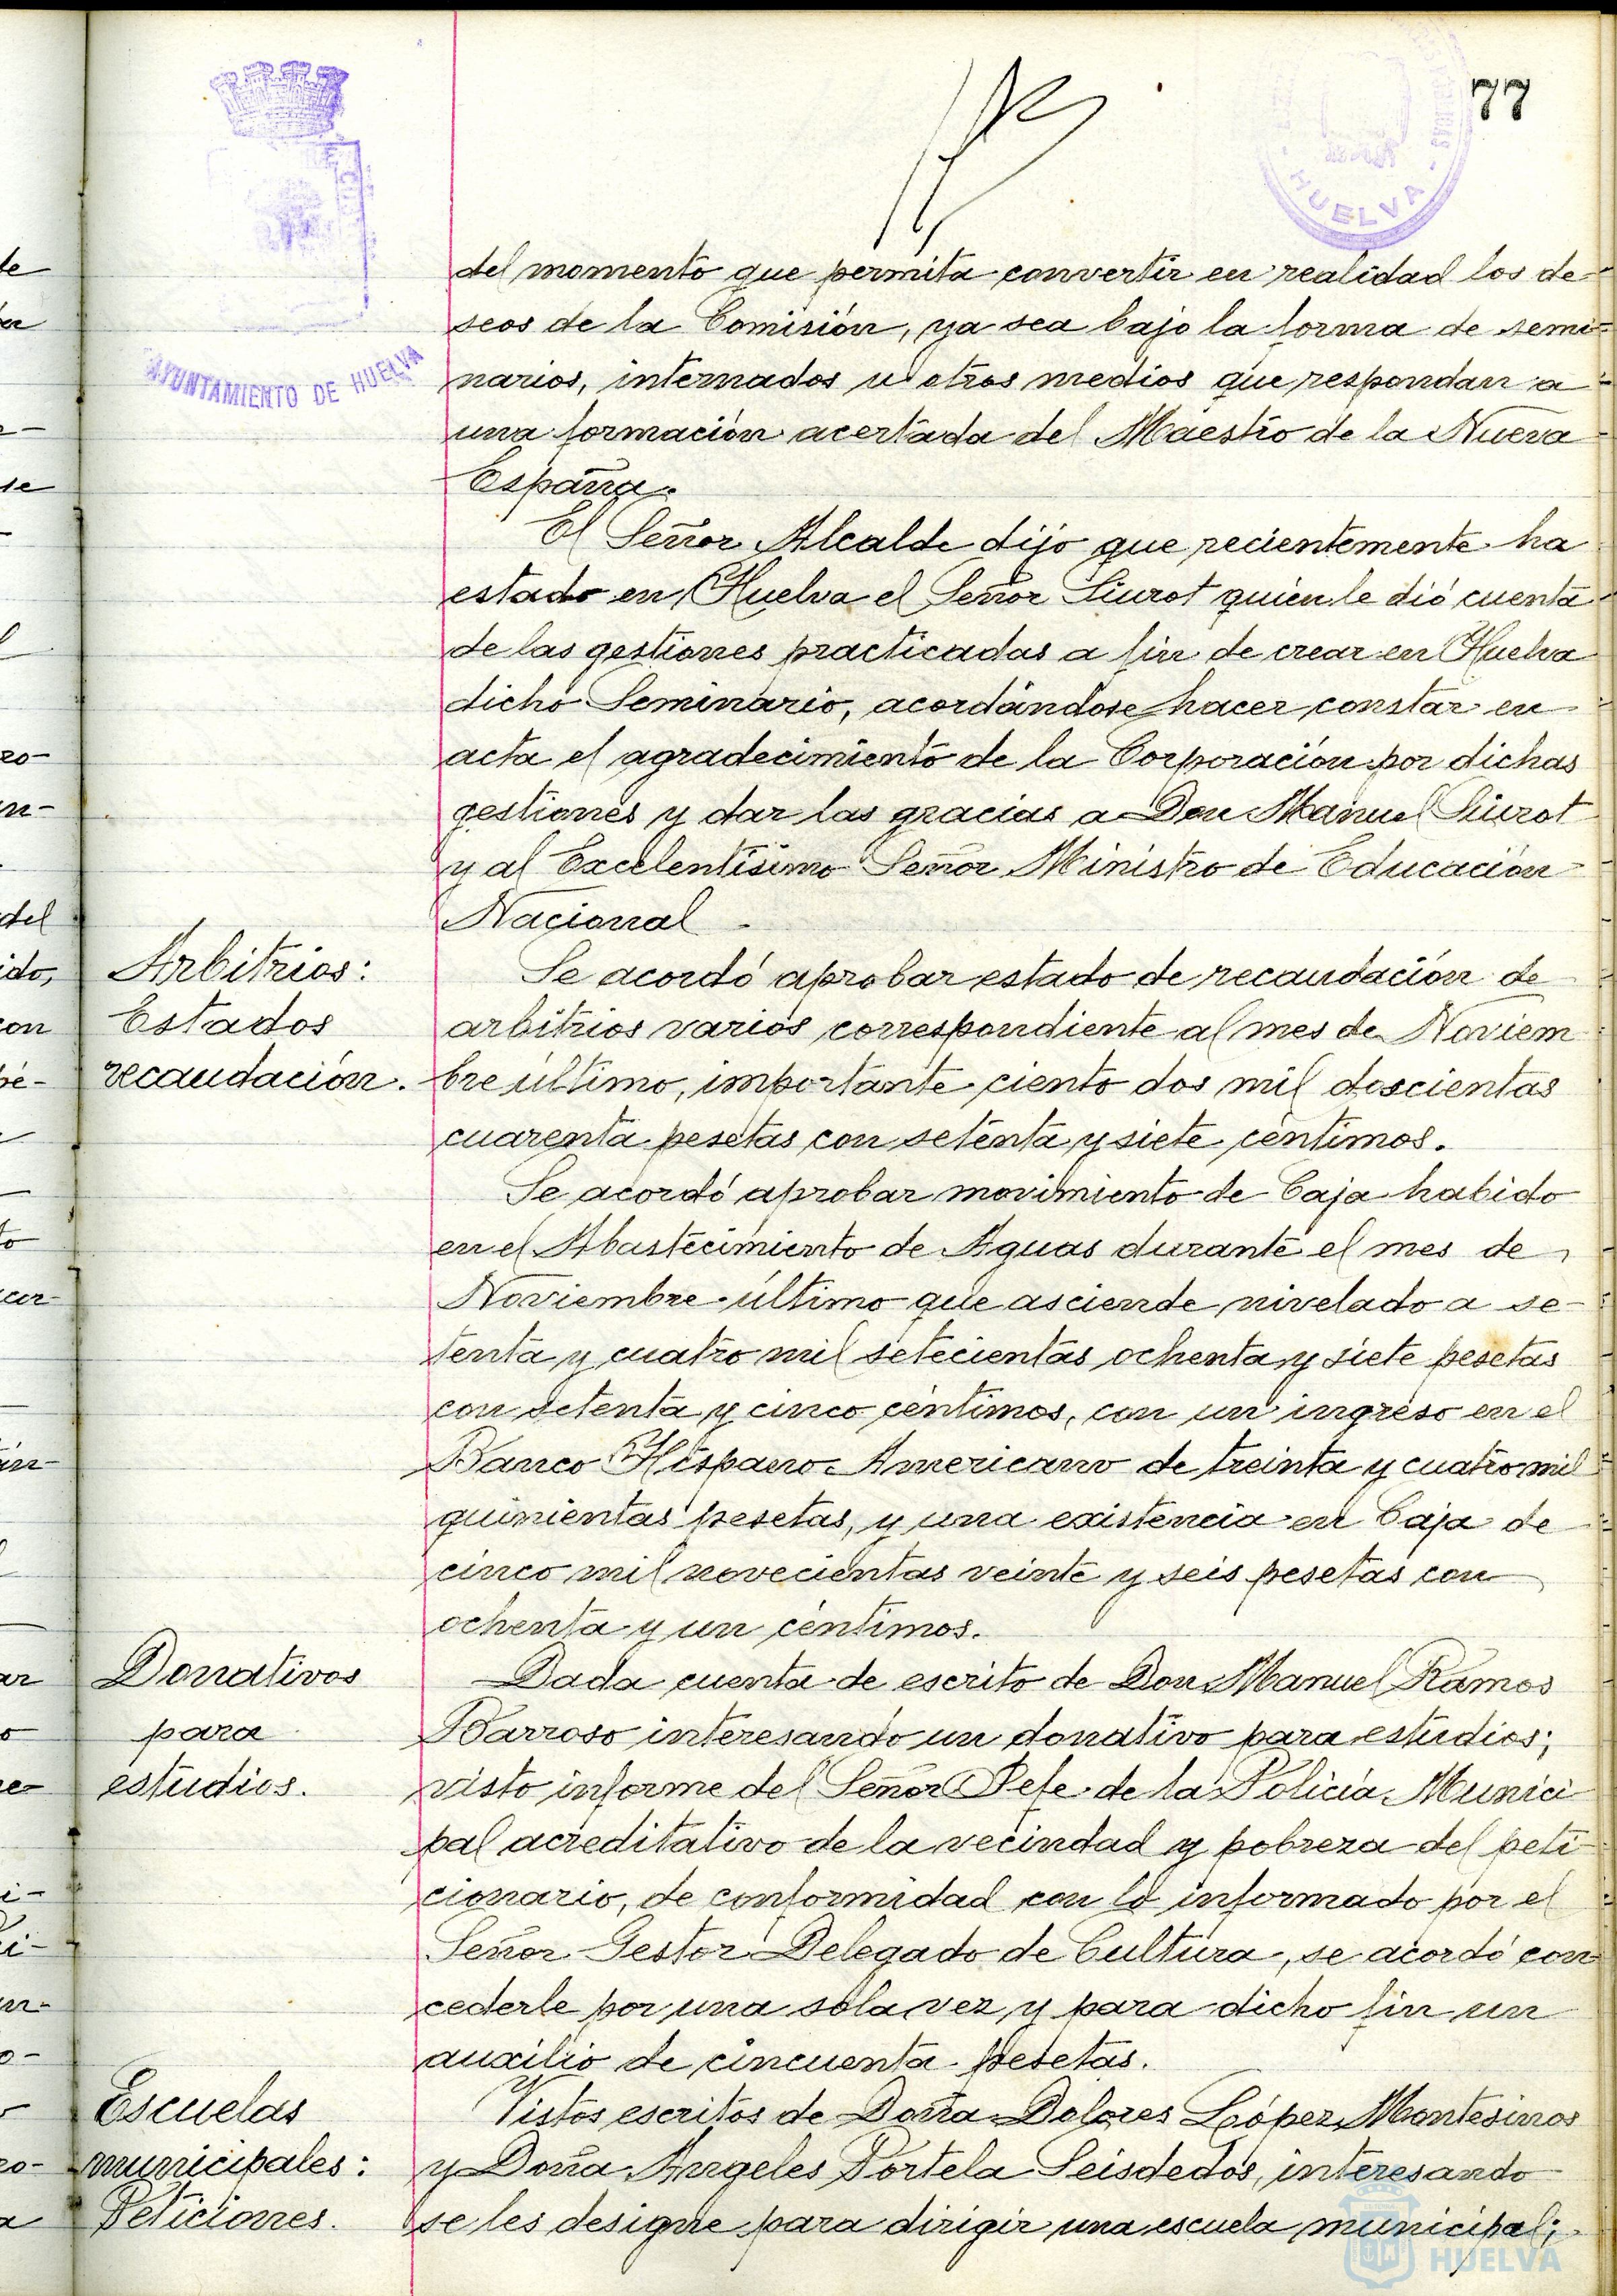 77
HUELVA
AYUNTAMIENTO DE HUELVA
del momento que permita convertir en realidad los de-
seos de la Comisión, ya sea bajo la forma de semi-
narios, internados u otros medios que respondan a
una formación acertada del Maestro de la Nueva
España.
El Señor Alcalde dijo que recientemente ha
estado en Huelva el Señor Siurot quien le dió cuenta
de las gestiones practicadas a fin de crear en Huelva
dicho Seminario, acordándose hacer constar en
acta el agradecimiento de la Corporación por dichas
gestiones y dar las gracias a Don Manuel Siurot
y al Excelentísimo Señor Ministro de Educación
Nacional.
Arbitrios:
Estados
recaudación.
Se acordó aprobar estado de recaudación de
arbitrios varios correspondiente al mes de Noviem
bre último, importante ciento dos mil doscientas
cuarenta pesetas con setenta y siete céntimos.
Se acordó aprobar movimiento de Caja habido
en el Abastecimiento de Aguas durante el mes de
Noviembre último que asciende nivelado a se-
tenta y cuatro mil setecientas ochenta y siete pesetas
con setenta y cinco céntimos, con un ingreso en el
Banco Hispano-Americano de treinta y cuatro mil
quinientas pesetas, y una existencia en Caja de
cinco mil novecientas veinte y seis pesetas con
ochenta y un céntimos.
Donativos
para
estudios.
Dada cuenta de escrito de Don Manuel Ramos
Barroso interesando un donativo para estudios;
visto informe del Señor Jefe de la Policía Munici
pal acreditativo de la vecindad y pobreza del peti-
cionario, de conformidad con lo informado por el
Señor Gestor Delegado de Cultura, se acordó con
cederle por una sola vez y para dicho fin un
auxilio de cincuenta pesetas.
Escuelas
municipales:
Peticiones.
Vistos escritos de Doña Dolores López Montesinos
y Doña Angeles Portela Seisdedos, interesando
se les designe para dirigir una escuela municipal;
HUELVA